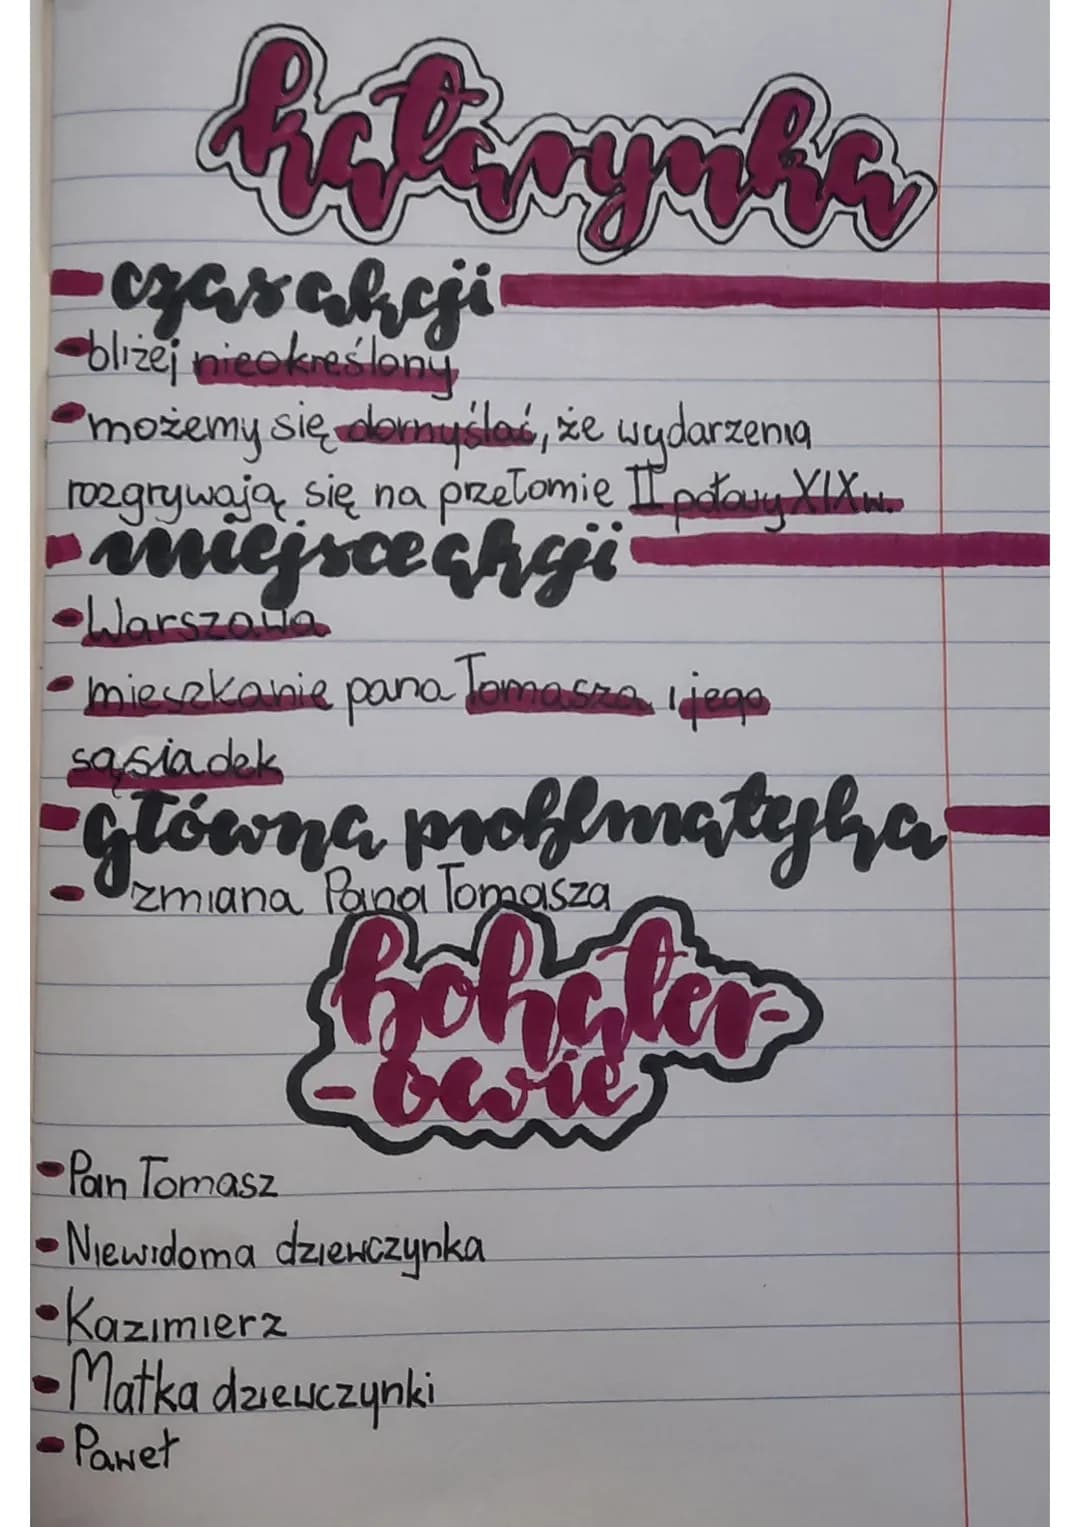 katarynka
czas akcji
bliżej nieokreślony
możemy się domyślać, że wydarzenia
rozgrywają się na przełomie II połowy XIX w.
miejsce akcji
Warszawa
mieszkanie pana Tomasza i jego
sąsiadek
główna problmatyka
zmiana Pana Tomasza
bohater-
-owie
Pan Tomasz
Niewidoma dziewczynka
Kazimierz
Matka dziewczynki
Paweł